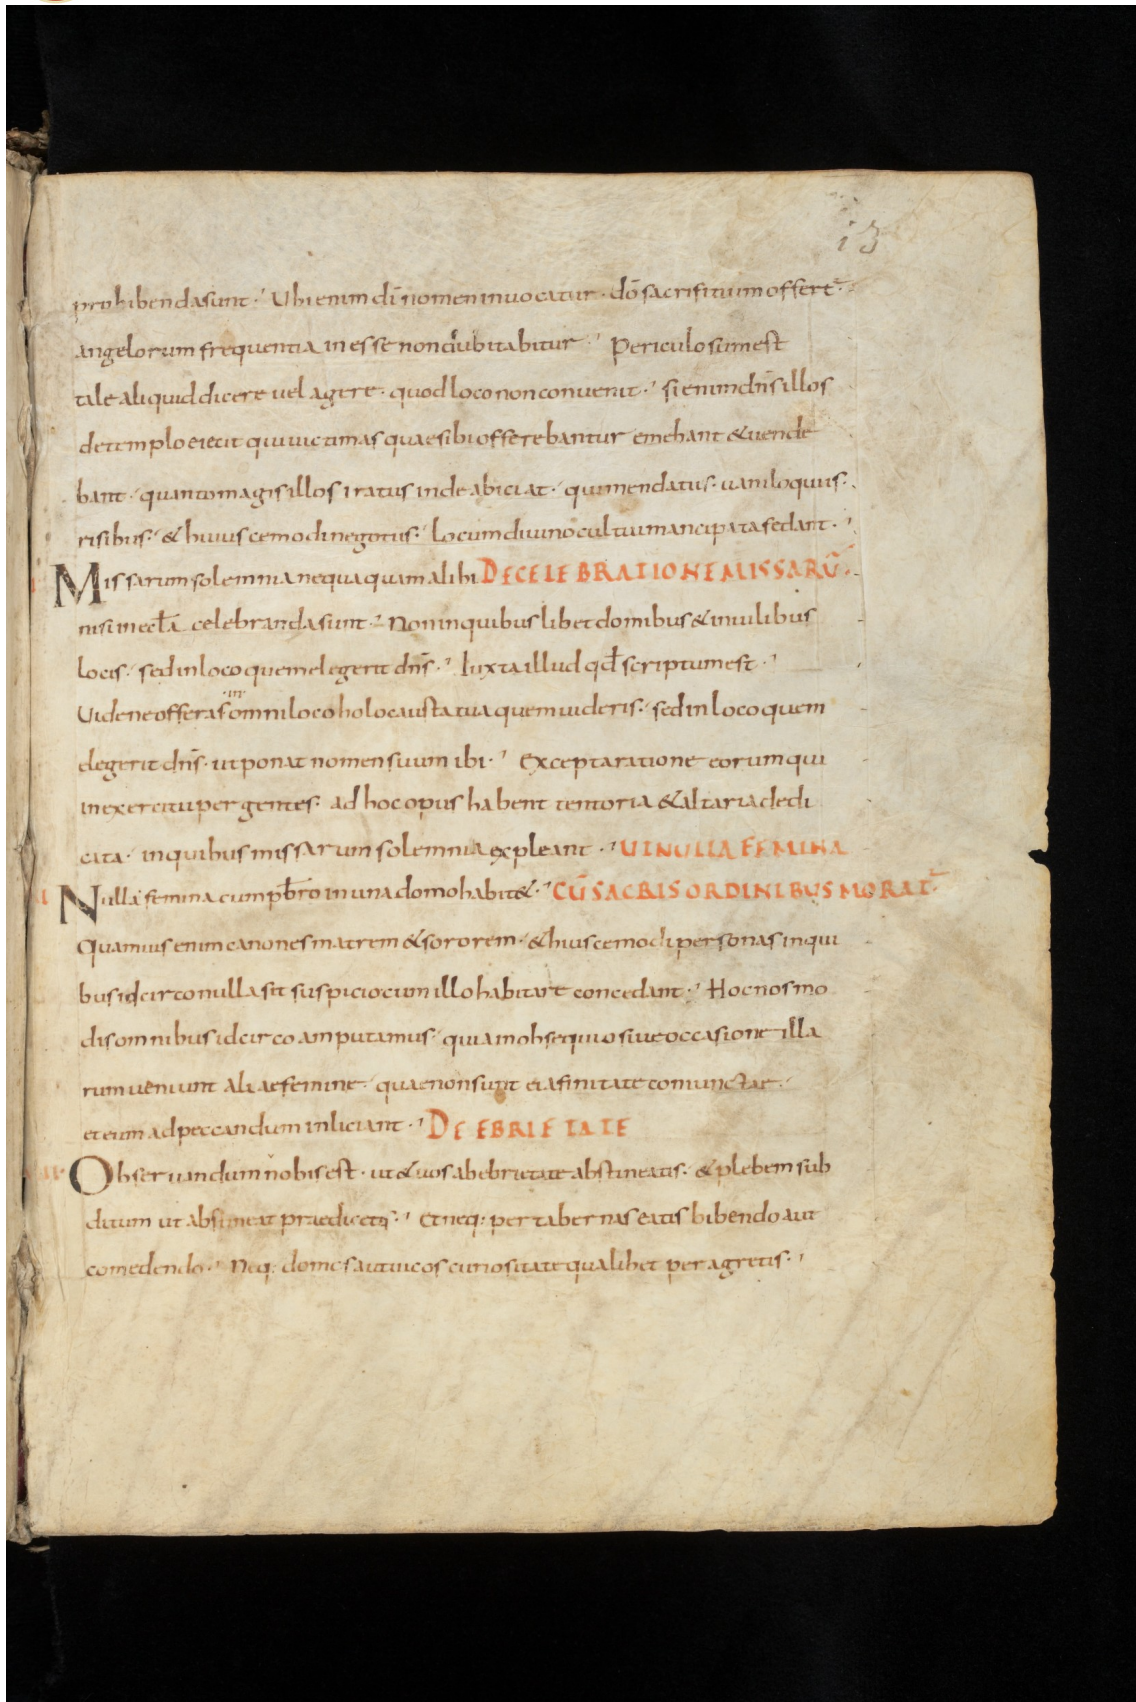 13
prohibenda sunt. Ubi enim dī nomen invocatur. dō sacrifitium offert̄.
angelorum frequentia inesse non dubitabitur. Periculosum est
tale aliquid dicere vel agere. quod loco non convenit. si enim dn̄s illos
de templo eiecit qui victimas quae sibi offerebantur emebant & vende
bant. quanto magis illos iratus inde abiciat. qui mendatiis. vaniloquiis.
risibus. & huiuscemodi negotiis. locum divino cultui mancipata sedant.
Missarum solemnia nequaquam alibi DE CELEBRATIONE MISSARŪ.
nisi in eccl̄a celebranda sunt. Non in quibuslibet domibus & in vilibus
locis. sed in loco quem elegerit dn̄s. Iuxta illud qd̄ scriptum est.
in
Vide ne offeras omni loco holocausta tua quem videris. sed in loco quem
elegerit dn̄s. ut ponat nomen suum ibi. Excepta ratione eorum qui
in exercitu pergentes. ad hoc opus habent tentoria & altaria dedi
cata. in quibus missarum solemnia expleant. UT NULLA FEMINA
Nulla femina cum pb̄ro in una domo habit&. CŪ SACRIS ORDINIBUS MORAT̄.
Quamvis enim canones matrem & sororem. & huiuscemodi personas in qui
bus idcirco nulla sit suspicio cum illo habitare concedant. Hoc nos mo
dis omnibus idcirco amputamus. quia in obsequio sive occasione illa
rum veniunt aliae femine. quae non sunt ei afinitate coniunctae.
et eum ad peccandum inliciant. DE EBRIETATE
Observandum nobis est. ut & vos ab ebrietate abstineatis. & plebem sub
ditum ut abstineat praedicetis. Et neq: per tabernas eatis bibendo aut
comedendo. Neq: domos aut vicos curiositate qualibet peragretis.